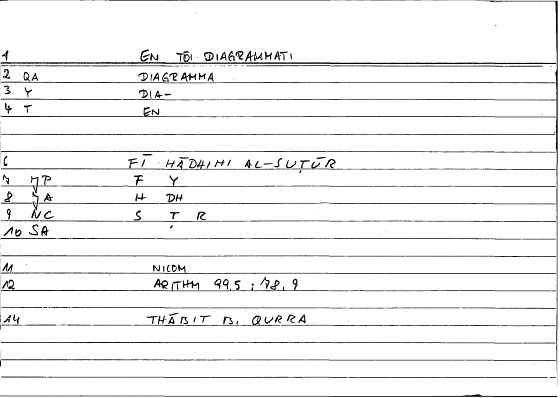 1 EN TŌI DIAGRAMMATI
2 QA DIAGRAMMA
3 Y DIA-
4 T EN
6 FĪ HĀDHIHI AL-SUṬŪR
7 MP F Y
8 JA H DH
9 NC S Ṭ R
10 SA
11 NICOM
12 ARITHM 99,5 ; 78,9
14 THĀBIT B. QURRA